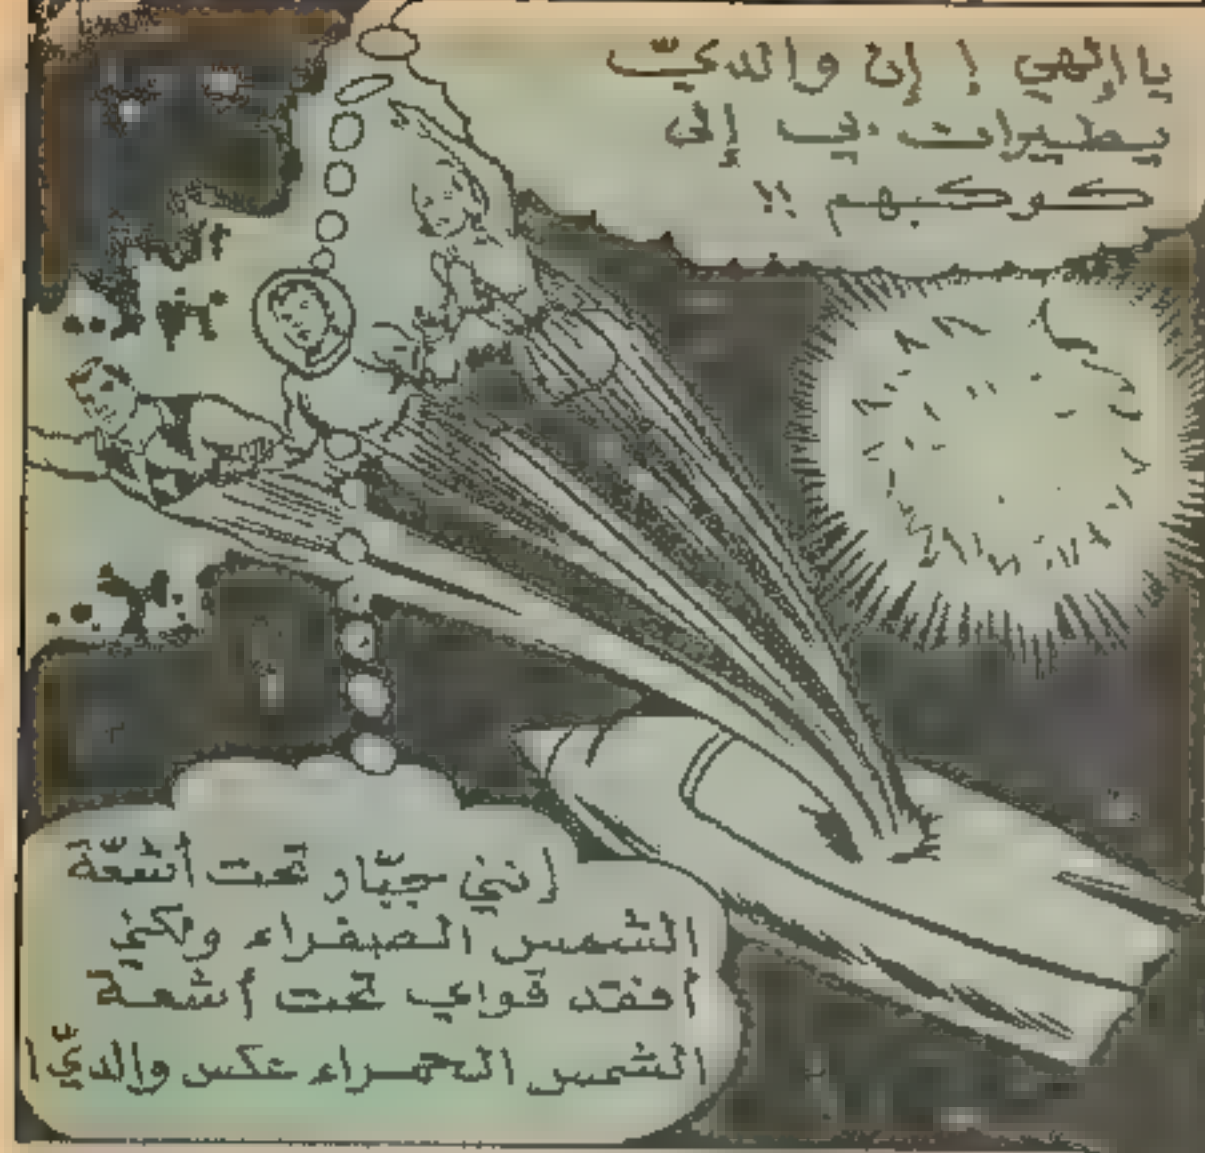 يا إلهي ! إن والديّ
يطيران بي إلى
كوكبهم !!
إنني جبّار تحت أشعّة
الشمس الصفراء ولكني
أفقد قواي تحت أشعة
الشمس الحمراء عكس والديّ !